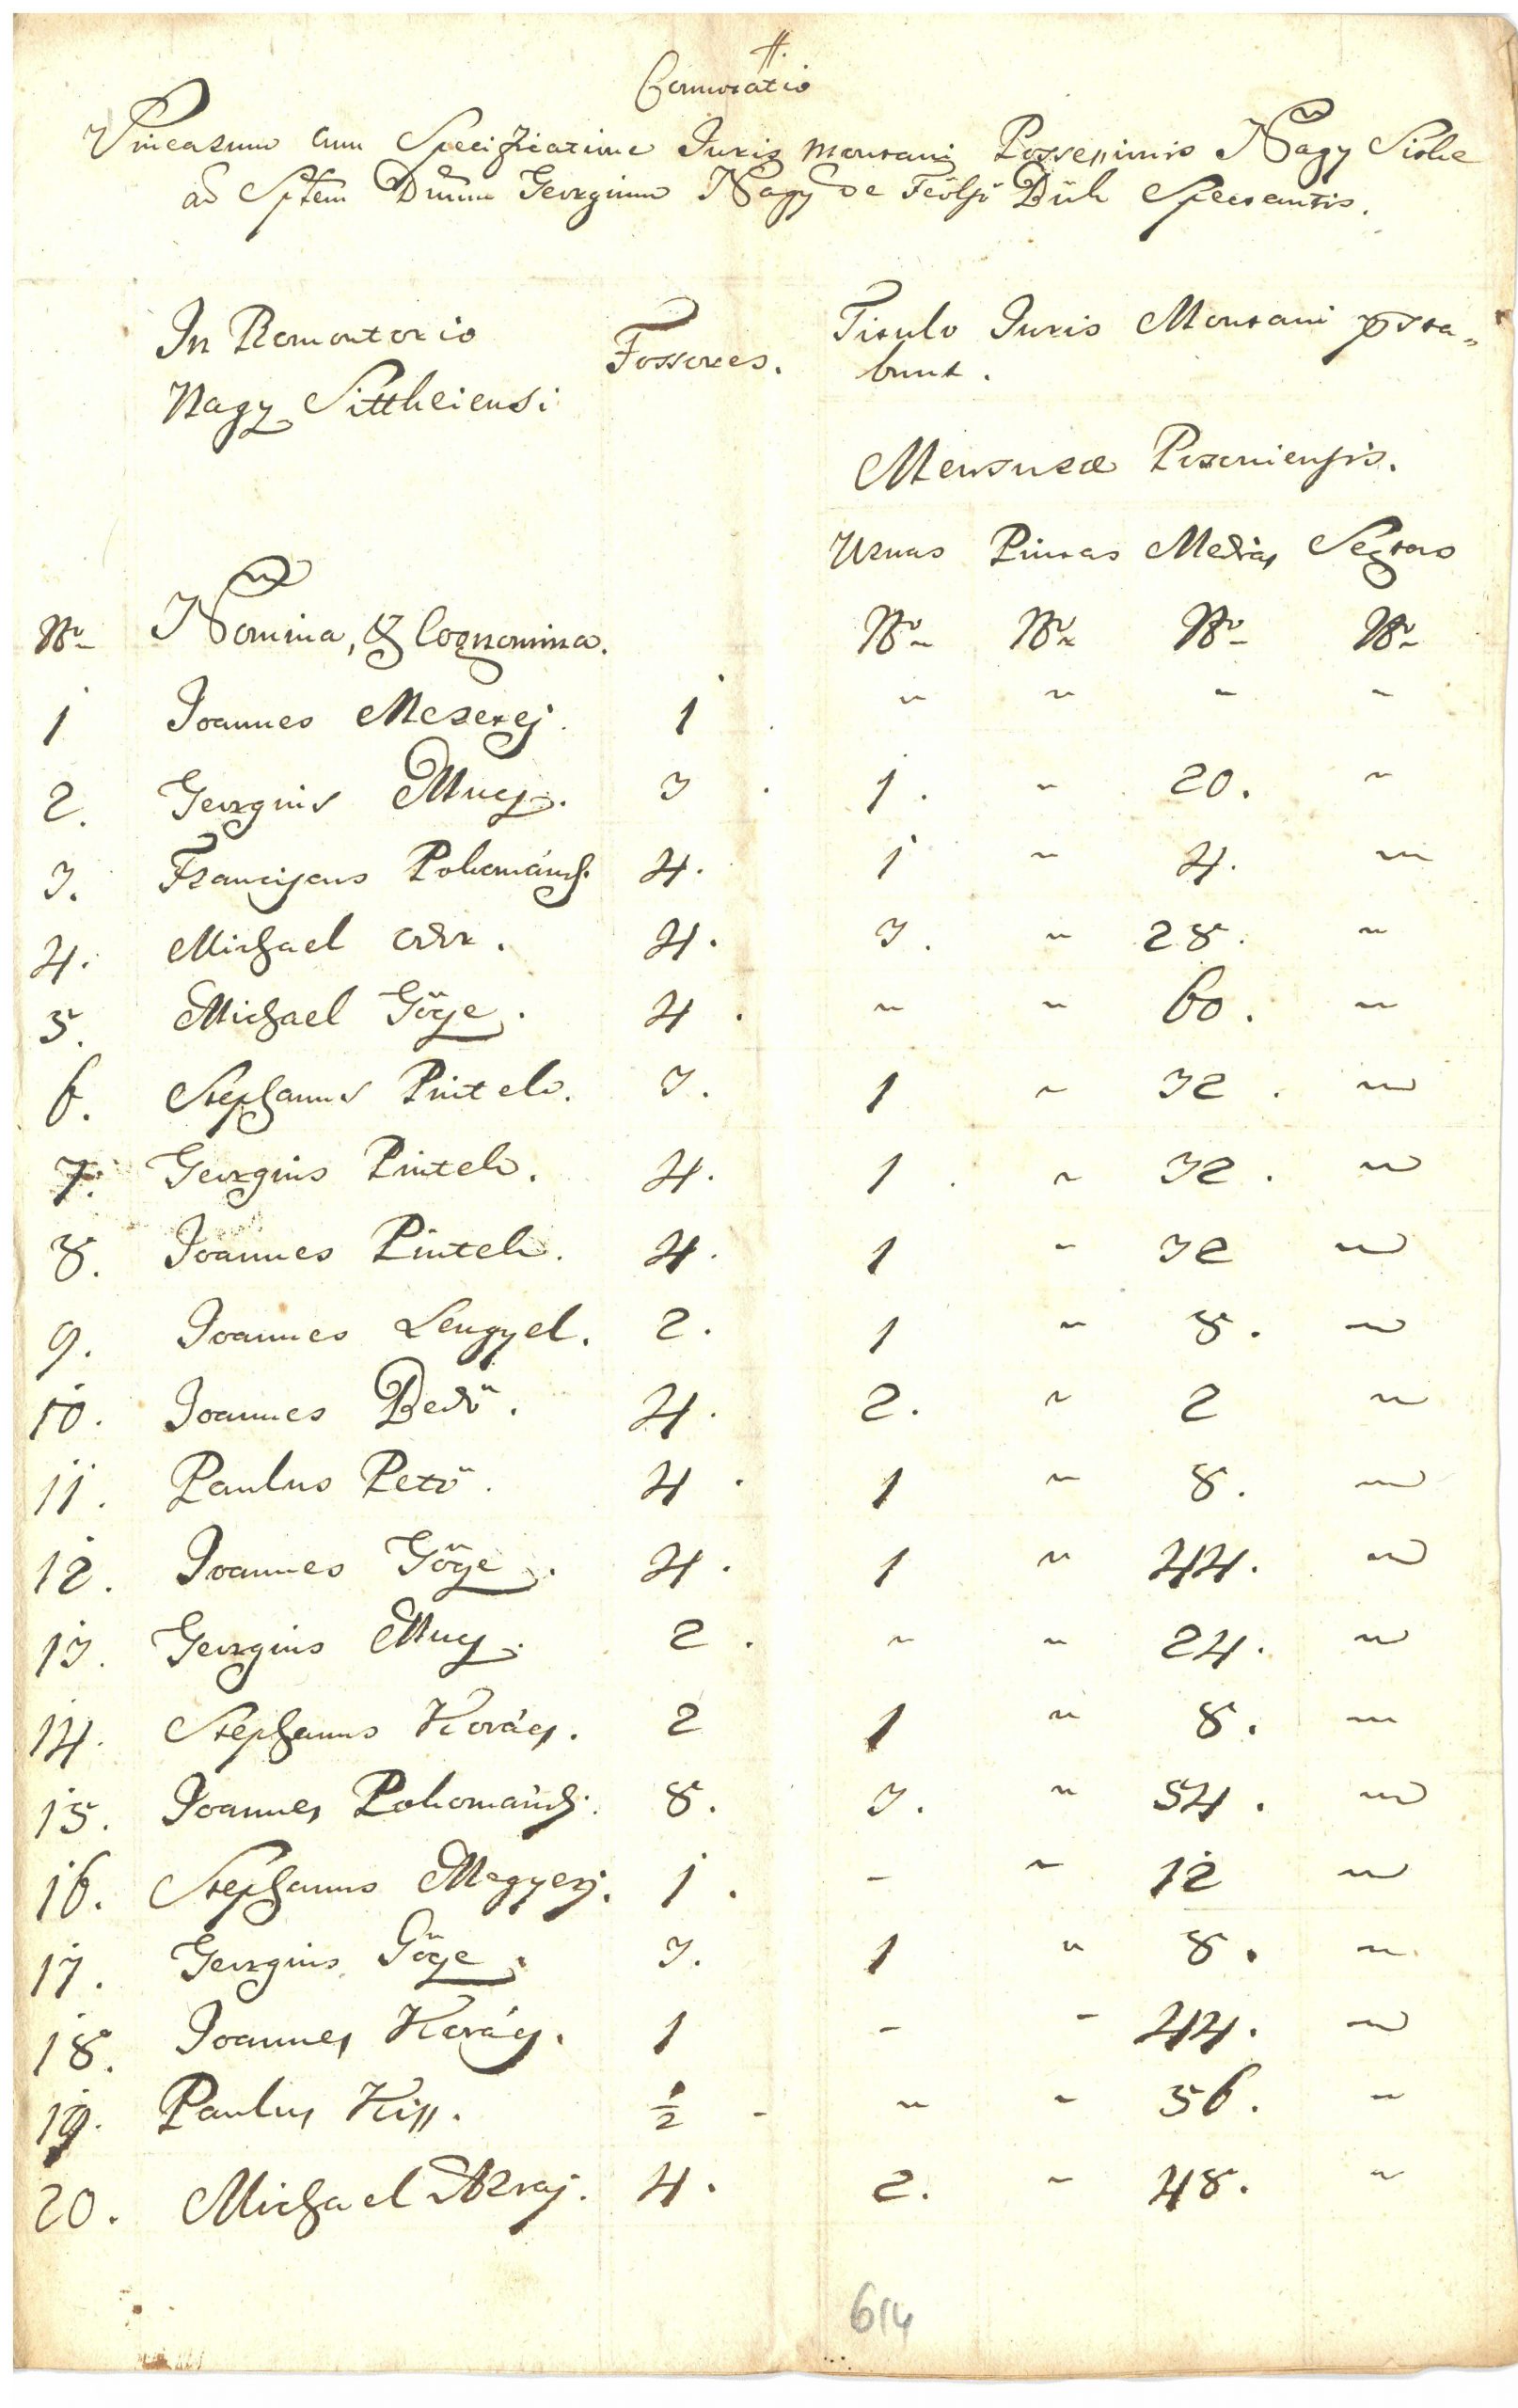 #.
Connotatio
Vinearum cum Specificatione Juris montani Possessionis Nagy Sithe
ad Sptem Dnum Georgium Nagy de Feölsö Bük Spectantis.
In Promontorio
Nagy Sittheiensi
Fossores.
Titulo Juris Montani psta„
bunt.
Mensuræ Posoniensis.
Urnas Pintas Medias Sextas
Nro Nomina, & Cognomina. Nro Nro Nro Nro
1 Joannes Mesterj. 1 " " - -
2. Georgius Mucz. 3 1. " 20. "
3. Franciscus Pohománcz. 4. 1 " 4. "
4. Michael 4. 3. " 28. "
5. Michael Göcze. 4. " " 60. "
6. Stephanus Pintér. 3. 1 " 32. "
7. Georgius Pintér. 4. 1. " 32. "
8. Joannes Pintér. 4. 1 " 32 "
9. Joannes Lengyel. 2. 1 " 8. "
10. Joannes Bedö. 4. 2. " 2 "
11. Paulus Petö. 4. 1 " 8. "
12. Joannes Göcze. 4. 1 " 44. "
13. Georgius Mucz. 2. " " 24. "
14. Stephanus Kovács. 2 1 " 8. "
15. Joannes Pohománcz. 8. 3. " 54. "
16. Stephanus Megyerj. 1. - " 12 "
17. Georgius Göcze. 3. 1 " 8. "
18. Joannes Kovács. 1 - - 44. "
19. Paulus Kiss. ½ - " " 56. "
20. Michael 4. 2. " 48. "
614